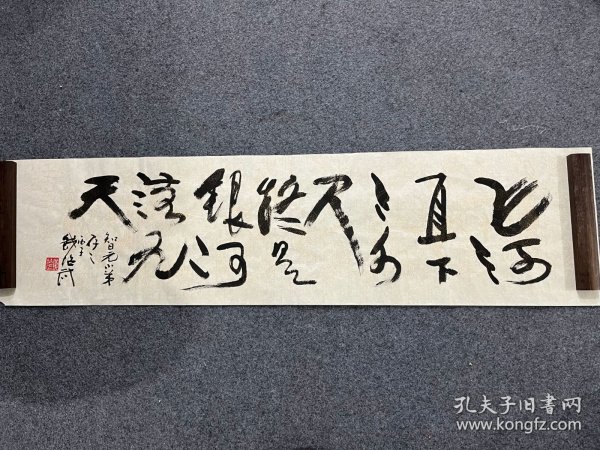 飞流
直下
三千
尺
疑是
銀河
落九
天
智元小弟
存之
孔夫子旧书网
www.kongfz.com